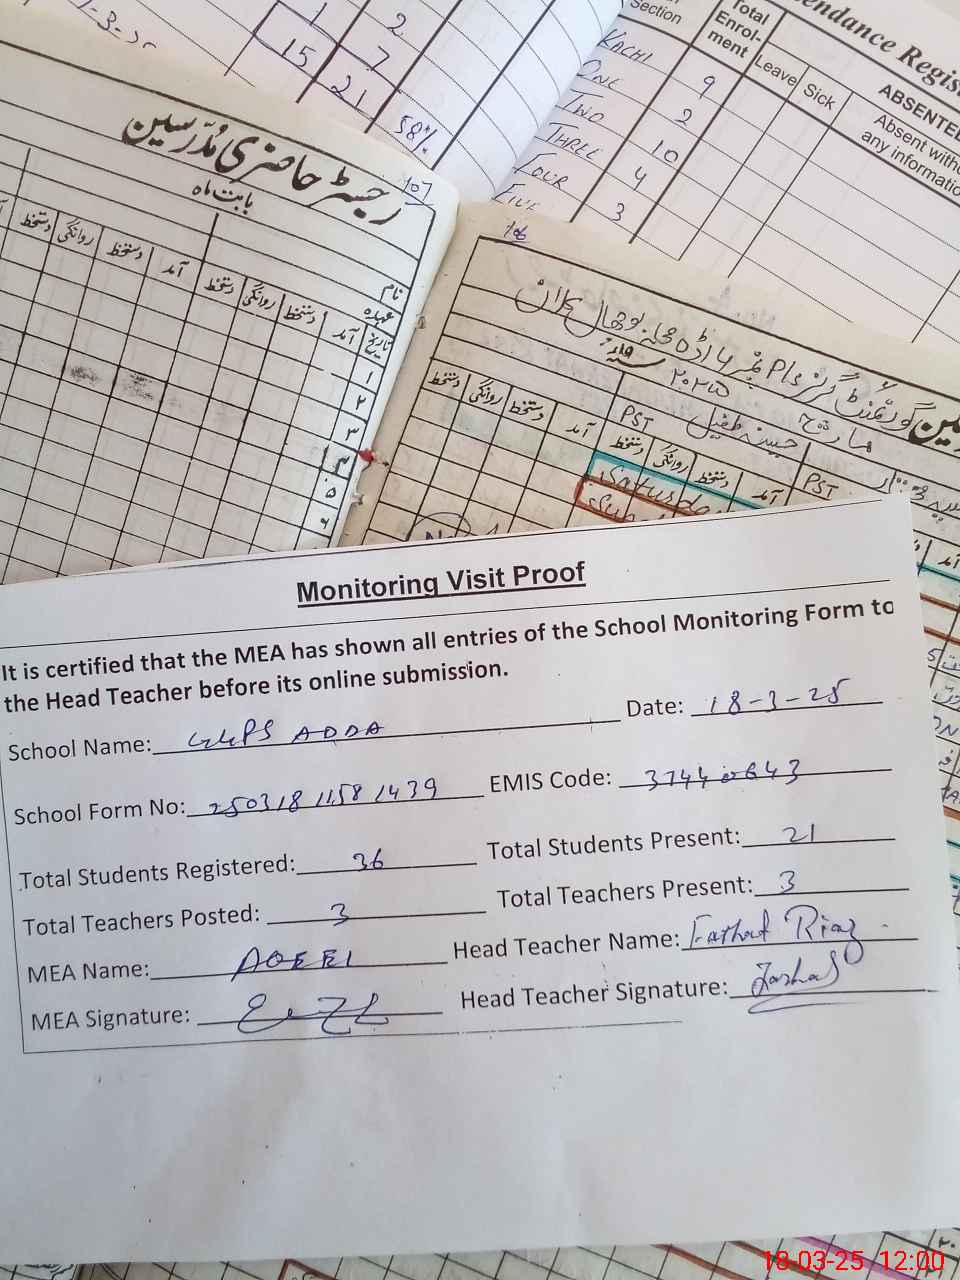 1 2
15 7
21
58%
Section
Total Enrol-ment
Leave
Sick
ABSENTEE
Absent without any information
KACHI 9
ONE 2
TWO 10
THREE 4
FOUR 3
FIVE
رجسٹر حاضری مدرسین
107
بابت ماہ
نام
عہدہ
تاریخ آمد دستخط روانگی دستخط آمد دستخط روانگی دستخط
۱
۲
۳
۴
۵
۶
106
مارچ ۲۰۲۵
PST PST
دستخط روانگی دستخط آمد دستخط روانگی دستخط آمد
Monitoring Visit Proof
It is certified that the MEA has shown all entries of the School Monitoring Form to
the Head Teacher before its online submission.
School Name: GGPS ADDA Date: 18-3-25
School Form No: 25031811581439 EMIS Code: 37440643
Total Students Registered: 36 Total Students Present: 21
Total Teachers Posted: 3 Total Teachers Present: 3
MEA Name: AQEEL Head Teacher Name: Farhat Riaz
MEA Signature: Head Teacher Signature: Farhat
18-03-25 12:00